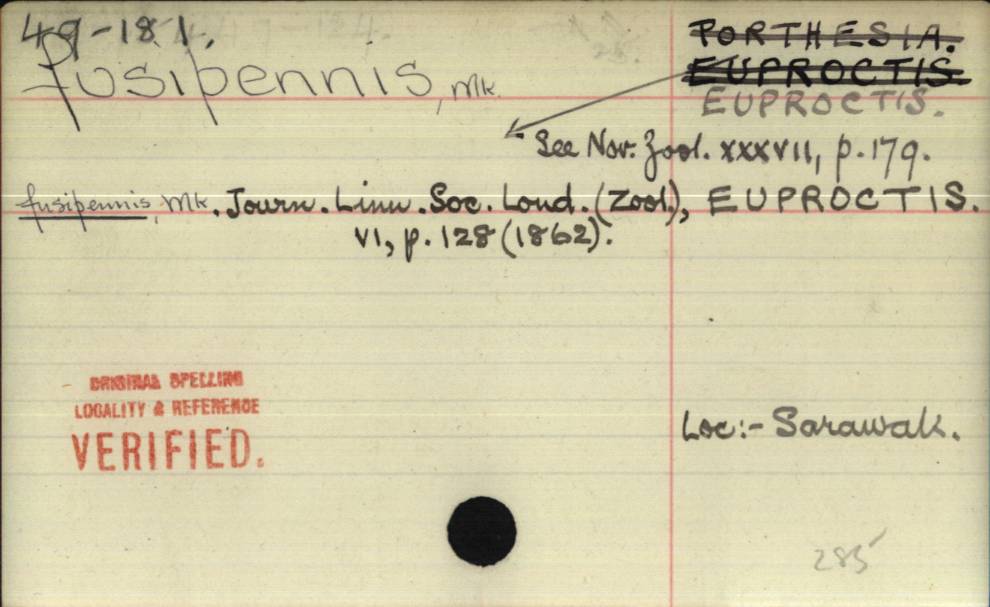 49-181.
PORTHESIA.
fusipennis, Mk.
EUPROCTIS.
EUPROCTIS.
See Nov. Zool. XXXVII, p. 179.
fusipennis, Mk. Journ. Linn. Soc. Lond. (Zool.), EUPROCTIS.
VI, p. 128 (1862).
ORIGINAL SPELLING
LOCALITY & REFERENCE
VERIFIED.
Loc:- Sarawak.
285